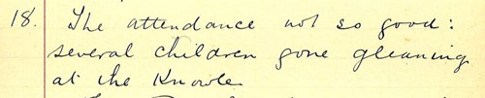 18. The attendance not so good:
several children gone gleaning
at the Knowle